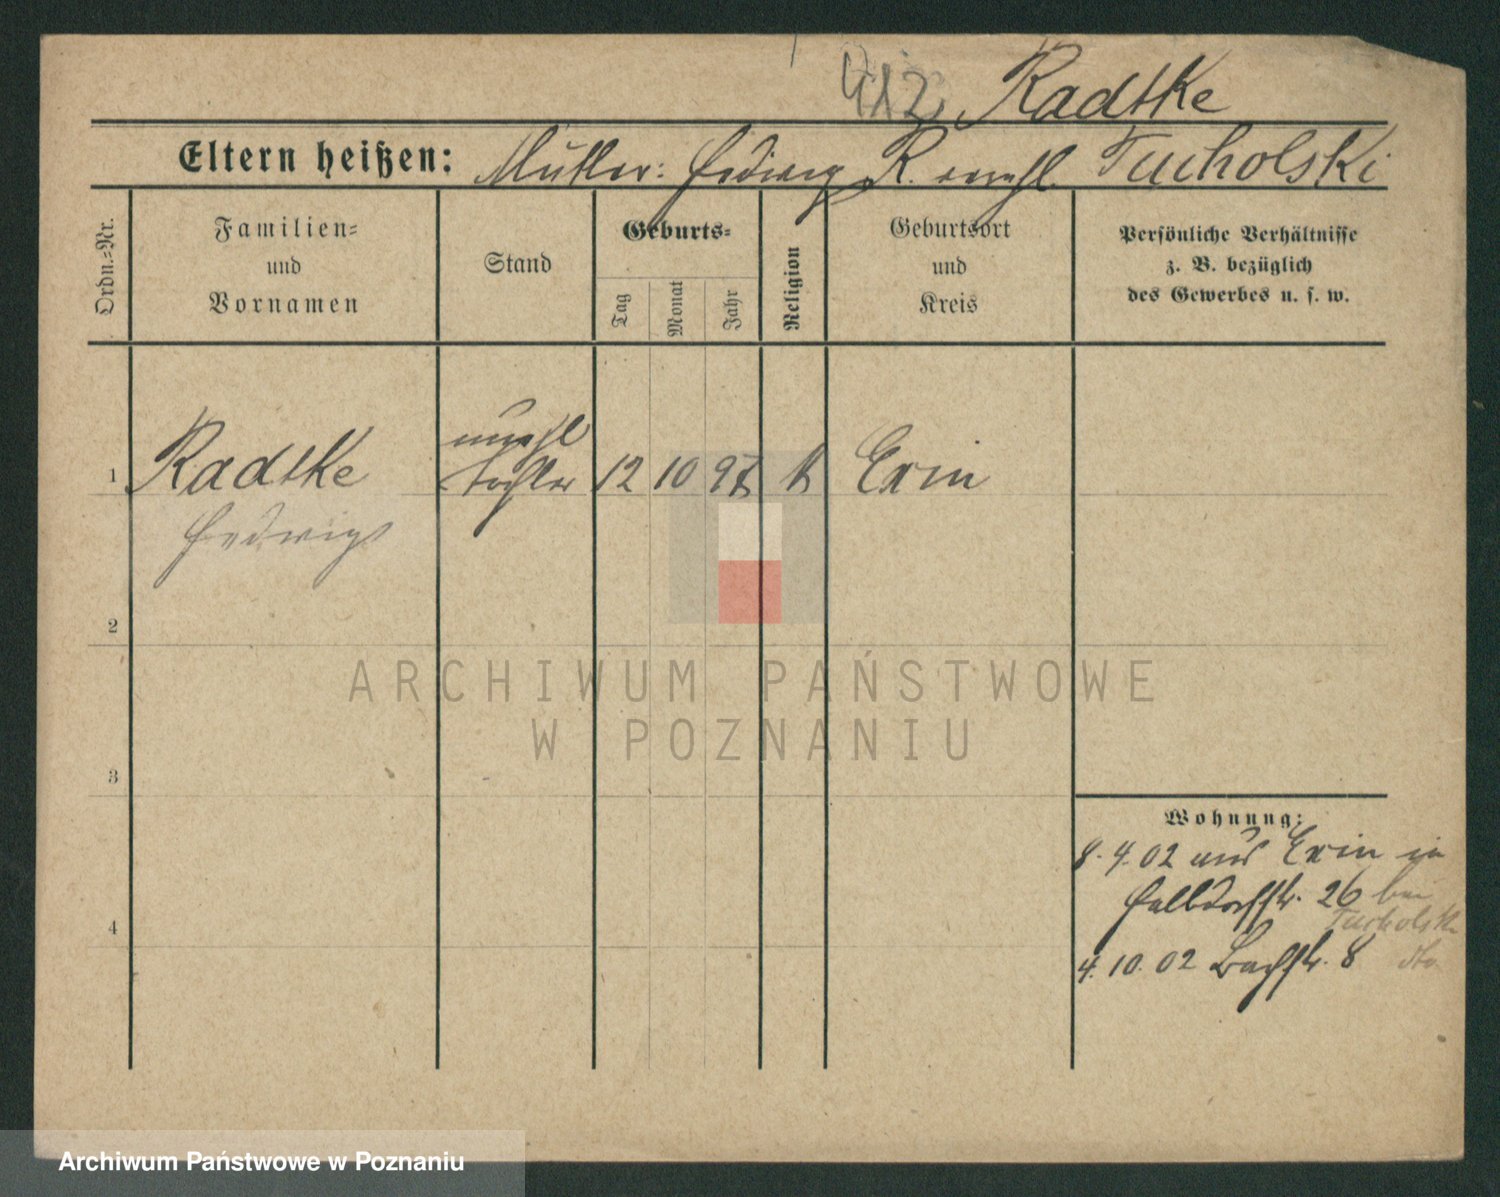 912 Radtke
Eltern heißen: Mutter: Hedwig R. verehl. Tucholski
Ordn.-Nr.
Familien-
und
Vornamen
Stand
Geburts-
Tag
Monat
Jahr
Religion
Geburtsort
und
Kreis
Persönliche Verhältnisse
z. B. bezüglich
des Gewerbes u. s. w.
1 Radtke
unehl
Tochter
12 10 97 k Exin
Hedwig
2
ARCHIWUM PAŃSTWOWE
W POZNANIU
3
Wohnung:
8.4.02 aus Exin in
Halldorfstr. 26 bei
Tucholski
4
4.10.02 Bachstr. 8 dto.
Archiwum Państwowe w Poznaniu